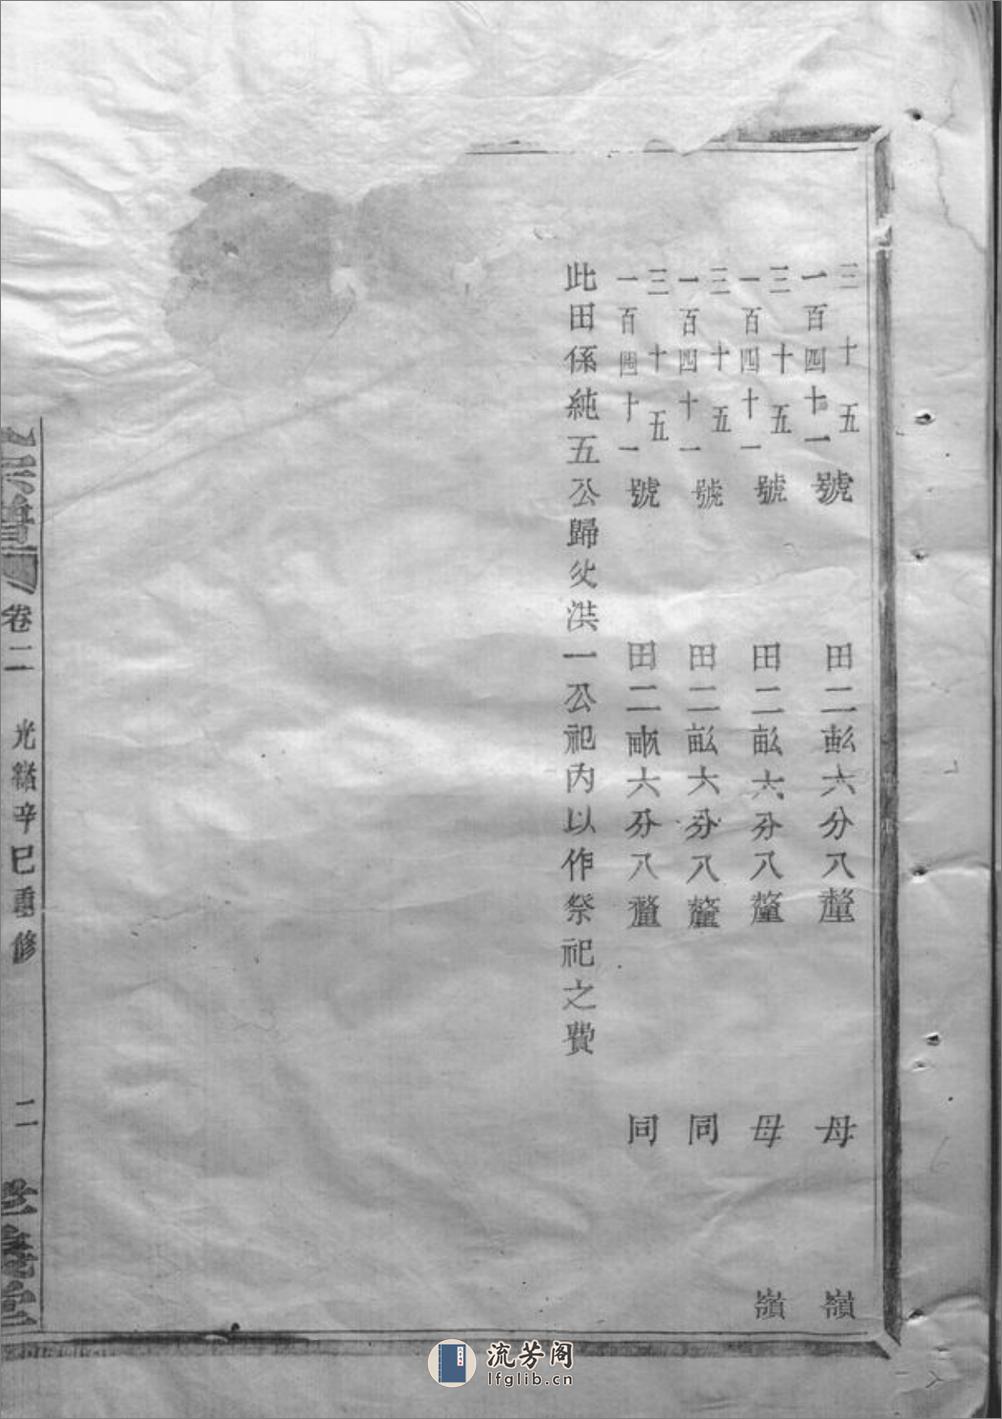 三十五
一百四十一號 田二畝六分八釐 母 嶺
三十五
一百四十一號 田二畝六分八釐 母 嶺
三十五
一百四十一號 田二畝六分八釐 同
三十五
一百四十一號 田二畝六分八釐 同
此田係純五公歸父洪一公祀內以作祭祀之費
宗譜 卷二 光緒辛巳重修 二
流芳阁
lfglib.cn